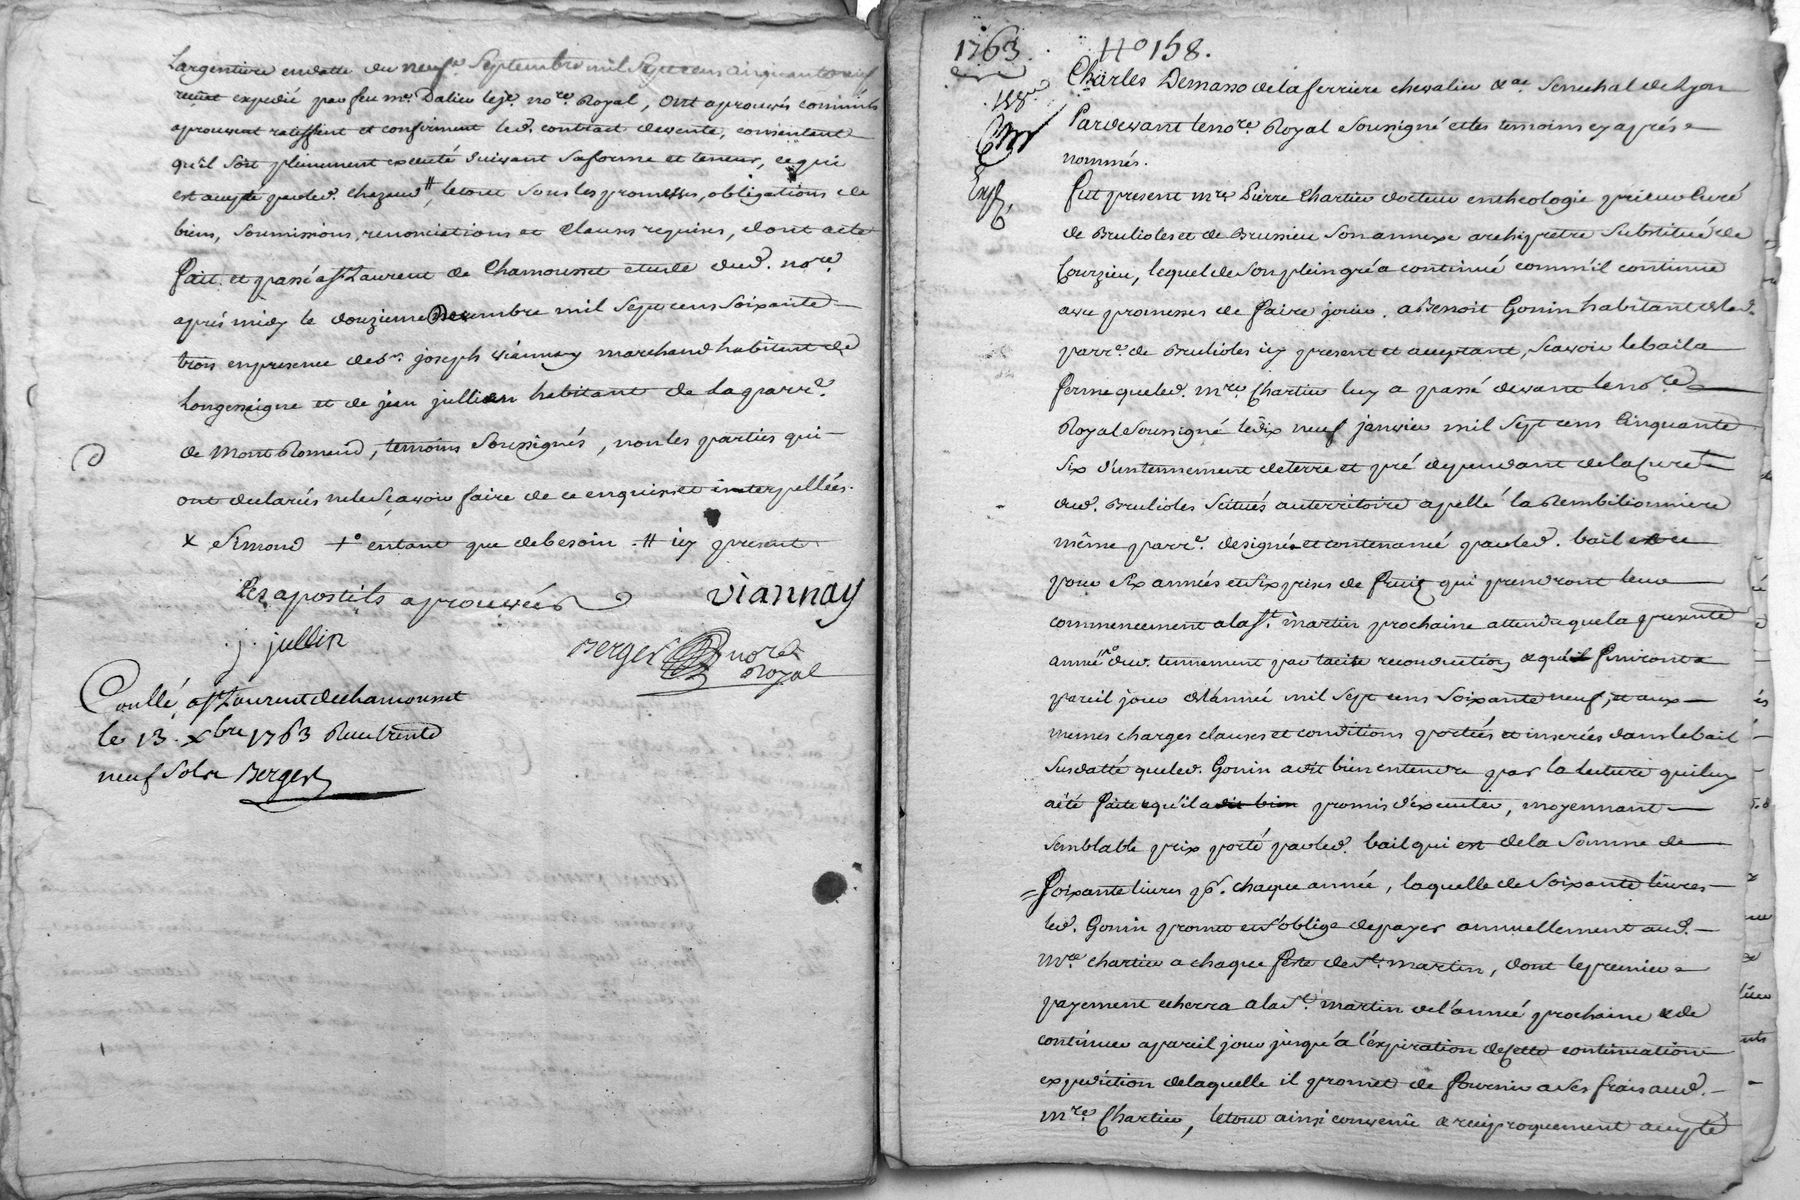 Largentiere endatte du neufe. Septembre mil Sept cens cinquante neuf
recüe expedié par feu me. Dalieu lejt. nore. Royal, ont aprouvés comm'ils
aprouvent ratiffient et confirment led. contract devente, consentant
qu'il soit pleinement executé suivant saforme et teneur, cequi
est accepté parled. chezaud #, letout sous les promesses, obligations de
biens, soumissions, renonciations et clauses requises, dont acte
fait et passé a st. Laurent de Chamousset etude dud. nore.
aprés midy le douzieme Decembre mil Sept cens soixante
trois enpresence de sr. joseph viannay marchand habitant de
Longessaigne et de jean jullien habitant de la parre.
de Mont Romend, temoins soussignés, non les parties qui
ont declarés nele sçavoir faire de ce enquises et interpellées.
x Simond +o entant que debesoin # icy present
Les apostils aprouvées
viannay
j. jullin
Berger nore.
Royal
Conllé, a st. Laurent dechamousset
le 13 xbre 1763 Reçu trente
neuf sols Berger
1763
No 158.
Charles Demasso delaferriere chevalier &ae. Senechal de Lyon
158e
Pardevant lenore. Royal soussigné et les temoins cy aprés
nommés.
Exp.
fut present mre. Pierre Chartier docteur entheologie prieur Curé
de Brulioles et de Brussieu son annexe archipretre substitué de
Courzieu, lequel de son plein gré a continué comm'il continue
avec promesses de faire jouir. a Benoit Gonin habitant delad.
parre. de Brulioles icy present et acceptant, scavoir lebail a
ferme queled. mre. Chartier luy a passé devant lenore.
Royal soussigné ledix neuf janvier mil Sept cens Cinquante
six d'un tennement deterre et pré dependant delaCure
dud. Brulioles scitués auterritoire apellé la Rembilionniere
même parre. designé et contenancé parled. bail et ce
pour six années et six prises de fruit qui prendront leur
commencement a la st. martin prochaine attendu que la presente
année dud. tennement par tacite reconduction & qu'il finiront a
pareil jour de l'année mil Sept cens soixante neuf, et aux
memes charges clauses et conditions portées et inserées dans le bail
susdatté queled. Gonin a dit bien entendre par la lecture quiluy
aété faite & qu'il a dit bien promis d'executer, moyennant
semblable prix porté parled. bail qui est dela somme de
soixante livres pr. chaque année, laquelle de soixante livres
led. Gonin promet et s'oblige depayer annuellement aud.
mre. chartier a chaque feste de st. martin, dont lepremier
payement echerra a la st. martin del'année prochaine & de
continuer a pareil jour jusqu'á l'expiration de cette continuation
expedition delaquelle il promet de fournir a ses frais aud.
mre. Chartier, letout ainsi convenû & reciproquement accepté